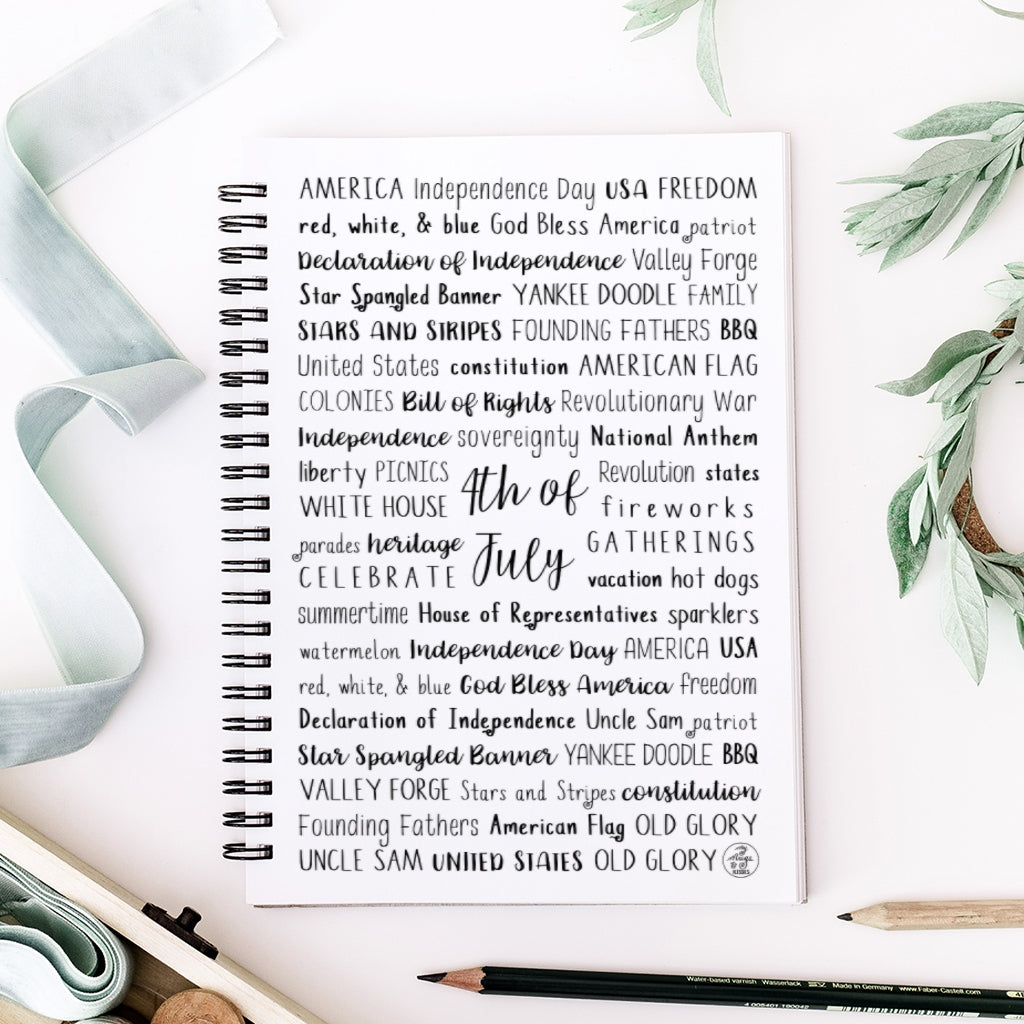 AMERICA Independence Day USA FREEDOM
red, white, & blue God Bless America patriot
Declaration of Independence Valley Forge
Star Spangled Banner YANKEE DOODLE FAMILY
STARS AND STRIPES FOUNDING FATHERS BBQ
United States constitution AMERICAN FLAG
COLONIES Bill of Rights Revolutionary War
Independence sovereignty National Anthem
liberty PICNICS
WHITE HOUSE
4th of
Revolution states
fireworks
parades heritage
CELEBRATE
July
GATHERINGS
vacation hot dogs
summertime House of Representatives sparklers
watermelon Independence Day AMERICA USA
red, white, & blue God Bless America freedom
Declaration of Independence Uncle Sam patriot
Star Spangled Banner YANKEE DOODLE BBQ
VALLEY FORGE Stars and Stripes constitution
Founding Fathers American Flag OLD GLORY
UNCLE SAM UNITED STATES OLD GLORY
KISSES
Water-based varnish Wasserlack Made in Germany www.Faber-Castell.com